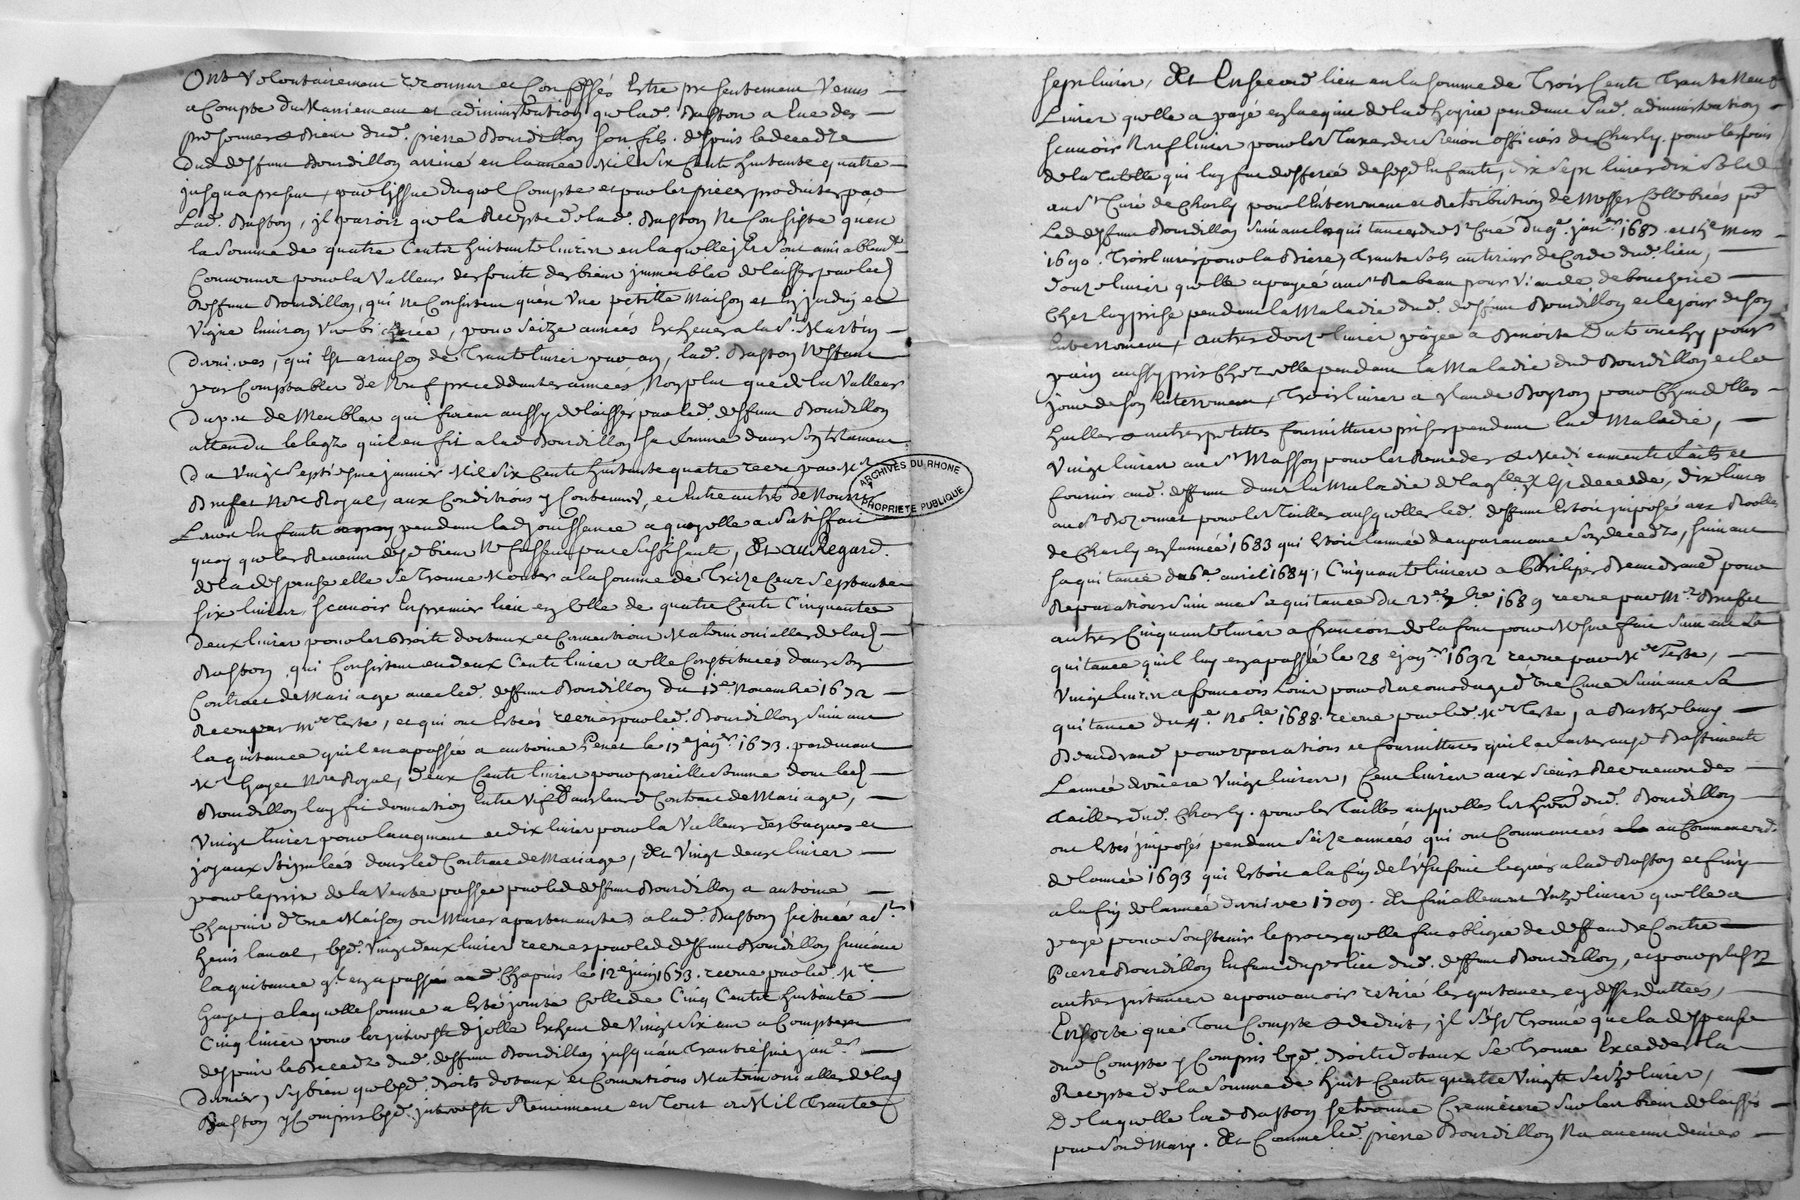 Ont volontairement reconnu et Confessés Estre presentement Venus
a Compte du Maniement et administration que lad. Baston a Eue des
personnes & Biens dud. pierre Bourdillon son fils. depuis le decedz
dud deffunt Bourdillon arrivé en lannée Mil Six Cents huitante quatre
jusqua present, par lissue duquel Compte et par les pieces produites par
Lad. Baston, jl paroit que la Recepte de lad. Baston Ne Consiste quen
la somme de quatre Cents huitante livres en laquelle jls sont amiablemt
Convenus pour la Valleur des fruits des biens jmmeubles delaissés par led
deffunt Bourdillon, qui ne Consistent quen Une petitte Maison et Un jardin et
Vigne Environ Une bicherée, pour Seize années Escheues a la St. Martin
qui Est a raison de Trante livres par an, lad. Baston Nestant
pas Comptable de Neuf precedantes années, Non plus que de la Valleur
du peu de Meubles qui furent aussy delaissés par led. deffunt Bourdillon
attendu le legz quil en fit a lad Bourdillon sa femme dans son testament
du Vingt Septiesme janvier Mil Six Cents huitante quatre receu par Mr
Buffet Nore Royal, aux Conditions y Contenues, et Entre autres de Nourrir
Leurs Enfants pendant lad jouissance a quoy elle a satisfait
quoy que les Revenus desd biens Ne fussent pas suffisants, Et au Regard
de la despense elle se trouve Monter a la somme de Treize Cent Septante
six livres, scavoir En premier lieu en Celle de quatre Cents Cinquante
deux livres pour les droits dotaux et Conventions Matrimonialles de lad
Baston, qui Consistent en deux Cents livres a elle Constituées dans son
Contract de Mariage avec led. deffunt Bourdillon du 13e. Novembre 1672
Receu par Me Teste, et qui ont Estées receues par led. Bourdillon suivant
la quitance quil en a passée a antoine Penet le 13e janr. 1673. pardevant
Me Gayet Nore Royal, deux Cents livres pour pareille somme dont led
Bourdillon luy fit donnation Entre Vifs dans leurd Contract de Mariage,
Vingt livres pour laugment et dix livres pour la Valleur des bagues et
joyaux stipulées dans led Contract de Mariage, Et Vingt deux livres
pour le prix de la Vente passée par led deffunt Bourdillon a antoine
Chapuis dUne Maison ou Mazes apartenante a lad. Baston scituée a St.
Genis laval, lesd. Vingt deux livres receues par led deffunt Bourdillon suivant
la quitance quil en a passée aud Chapuis le 12e juin 1673. receue par led. Me
Gayet, a laquelle somme a Esté jointe Celle de Cinq Cents huitante
Cinq livres pour les jnterests djcelle Escheus de Vingt Six ans a Compter
despuis le decedz dud. deffunt Bourdillon jusquau Trantiesme janer.
dernier, sy bien que lesd. droits dotaux et Conventions Matrimonialles de lad
Baston y Compris lesd. jnterests Reviennent en Tout a Mil Trante
sept livres, Et En second lieu en la somme de Trois Cents Trante Neuf
Livres quelle a payé en lacquit de lad hoyrie pendant sad. administration
scavoir Neuf livres pour les Taxes des sieurs officiers de Charly pour les frais
de la Tutelle qui luy fut defferée de sesd Enfants, dix sept livres dix sols
au Sr Curé de Charly pour lEnterrement et Retribution de Messes Cellebrées pr
Led deffunt Bourdillon suivant les quitances dud Sr Curé du 9e. janer. 1687 et 14e Mars
1690. Trois livres pour la Biere, Trante sols au tireur de Corde dud. lieu,
douze livres quelle a payée au Sr Rabeau pour Viande de boucherie
Chez luy prise pendant la Maladie dud. deffunt Bourdillon et le jour de son
Enterrement, autres douze livres payée a Benoite Dutronchy pour
pain aussy pris Chez elle pendant la Maladie dud Bourdillon et le
jour de son Enterrement, Trois livres a Claude Boyron pour Chandelles
huilles & autres petittes fournittures prises pendant lad Maladie,
Vingt livres au Sr Masson pour les Remedes & Medicaments faits et
fournis aud. deffunt dans la Maladie de laqlle jl Est decedé, dix livres
au Sr Bozonnet pour les Tailles ausquelles led. deffunt Estoit jmposé aux Rolles
de Charly en lannée 1683 qui Estoit lannée dauparavant son decedz, suivant
sa quitance du 6e. avril 1684, Cinquante livres a Philipes Beaudrand pour
Reparations suivant sa quitance du 27e 7bre 1689 receue par Me Buffet
autres Cinquante livres a francois de la font pour Mesme fait suivant la
quitance quil luy en a passé le 28e janr. 1692 receue par Me Teste,
Vingt livres a francois Loir pour Racomodage dUne Cuve suivant sa
quitance du 4e. Nobre 1688. receue par led. Me Teste, a Barthelemy
Beaudrand pour reparations et fournittures quil a faites ausd Bastiments
Lannée derniere Vingt livres, Cent livres aux sieurs Receveurs des
Tailles dud. Charly. pour les Tailles ausquelles les hoirs dud. Bourdillon
ont Estés jmposés pendant Seize années qui ont Commancées au Commancemt.
de lannée 1693 qui Estoit a la fin de lUsufruit legué a lad Baston et finy
a la fin de lannée derniere 1709. Et finallement Unze livres quelle a
payé pour soustenir le proces quelle fut obligée de deffandre Contre
Pierre Bourdillon Enfant du per lict dud. deffunt Bourdillon, et pour plusrs
autres jnstances et pour avoir retiré les quitances cy dessus dattées,
Ensorte que Tout Compte & deduit, jl sest Trouvé que la despense
dud Compte y Compris lesd. droits dotaux se Trouve Excedder la
Recepte de la somme de huit Cents quatre Vingts Seize livres,
de laquelle lad Baston se trouve Creanciere sur les biens delaissés
par sond Mary. Et Comme led. pierre Bourdillon Na aucuns deniers
ARCHIVES DU RHONE
PROPRIETE PUBLIQUE